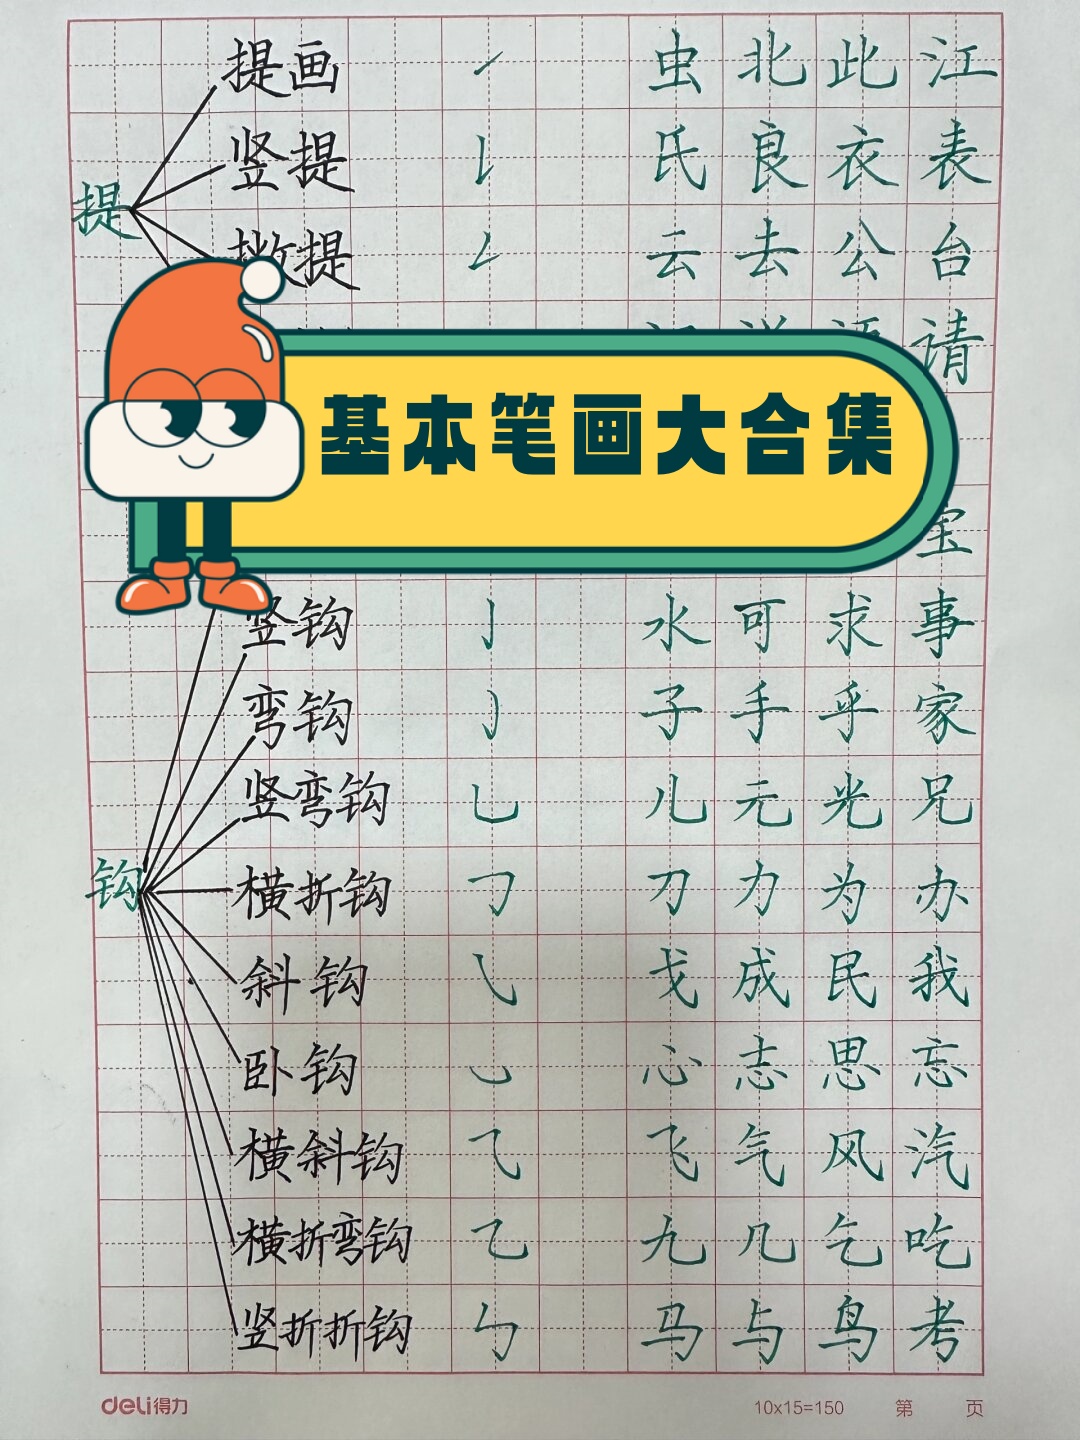 提画 ㇀ 虫 北 此 江
竖提 𠄌 氏 良 衣 表
提
撇提 ㇜ 云 去 公 台
请
基本笔画大合集
宝
竖钩 亅 水 可 求 事
弯钩 ㇁ 子 手 乎 家
竖弯钩 乚 儿 元 光 兄
钩
横折钩 𠃌 刀 力 为 办
斜钩 ㇂ 戈 成 民 我
卧钩 ㇃ 心 志 思 忘
横斜钩 ⺄ 飞 气 风 汽
横折弯钩 乙 九 几 乞 吃
竖折折钩 ㇉ 马 与 鸟 考
deli得力 10x15=150 第 页